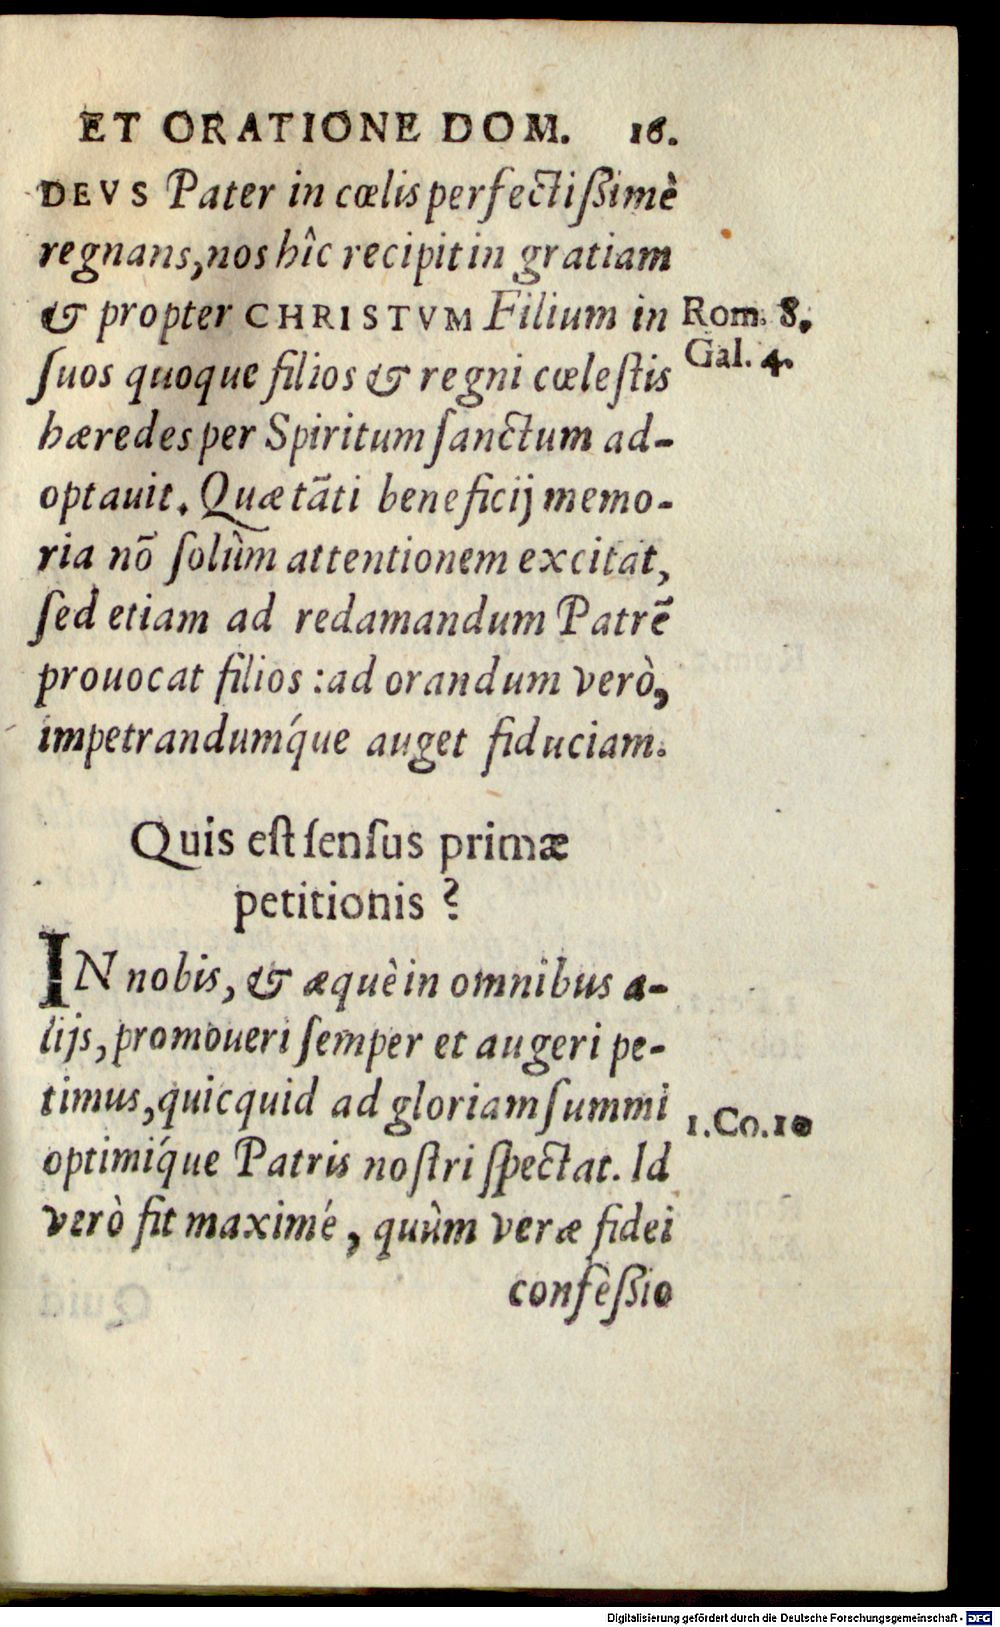 ET ORATIONE DOM. 16.
DEVS Pater in cœlis perfectißimè
regnans, nos hîc recipit in gratiam
& propter CHRISTVM Filium in
Rom. 8.
ſuos quoque filios & regni cœleſtis
Gal. 4.
hæredes per Spiritum ſanctum ad-
optauit. Quæ tāti beneficij memo-
ria nō ſolùm attentionem excitat,
ſed etiam ad redamandum Patrē
prouocat filios : ad orandum verò,
impetrandumq́ue auget fiduciam.
Quis eſt ſenſus primæ
petitionis ?
IN nobis, & æquè in omnibus a-
lijs, promoueri ſemper et augeri pe-
timus, quicquid ad gloriam ſummi
1. Co. 10
optimiq́ue Patris noſtri ſpectat. Id
verò fit maximé, quùm veræ fidei
confeßio
Digitalisierung gefördert durch die Deutsche Forschungsgemeinschaft - DFG